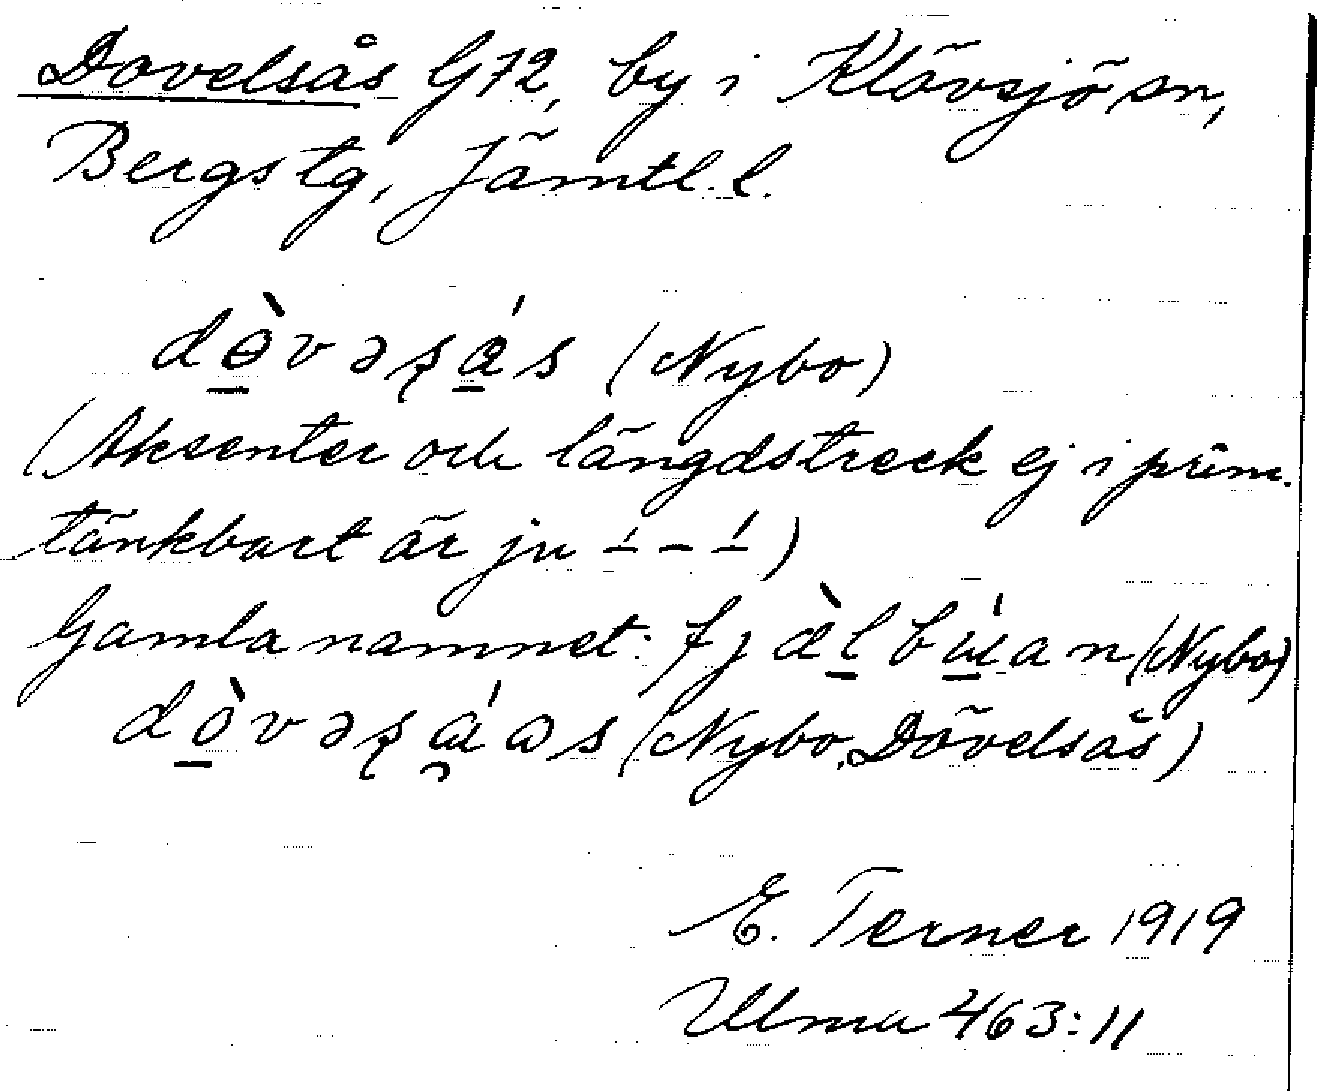 Dovelsås G72, by i Klövsjö sn,
Bergs tg, Jämtl. l.
də̱̀vəʂá̱s (Nybo)
(Aksenter och längdstreck ej i prim.
tänkbart är ju ⊥́ – ⊥́)
Gamla namnet: fjàḻbúi̱an (Nybo)
dò̱vəʂáɷs (Nybo, Dövelsås)
E. Terner 1919
Ulma 463:11